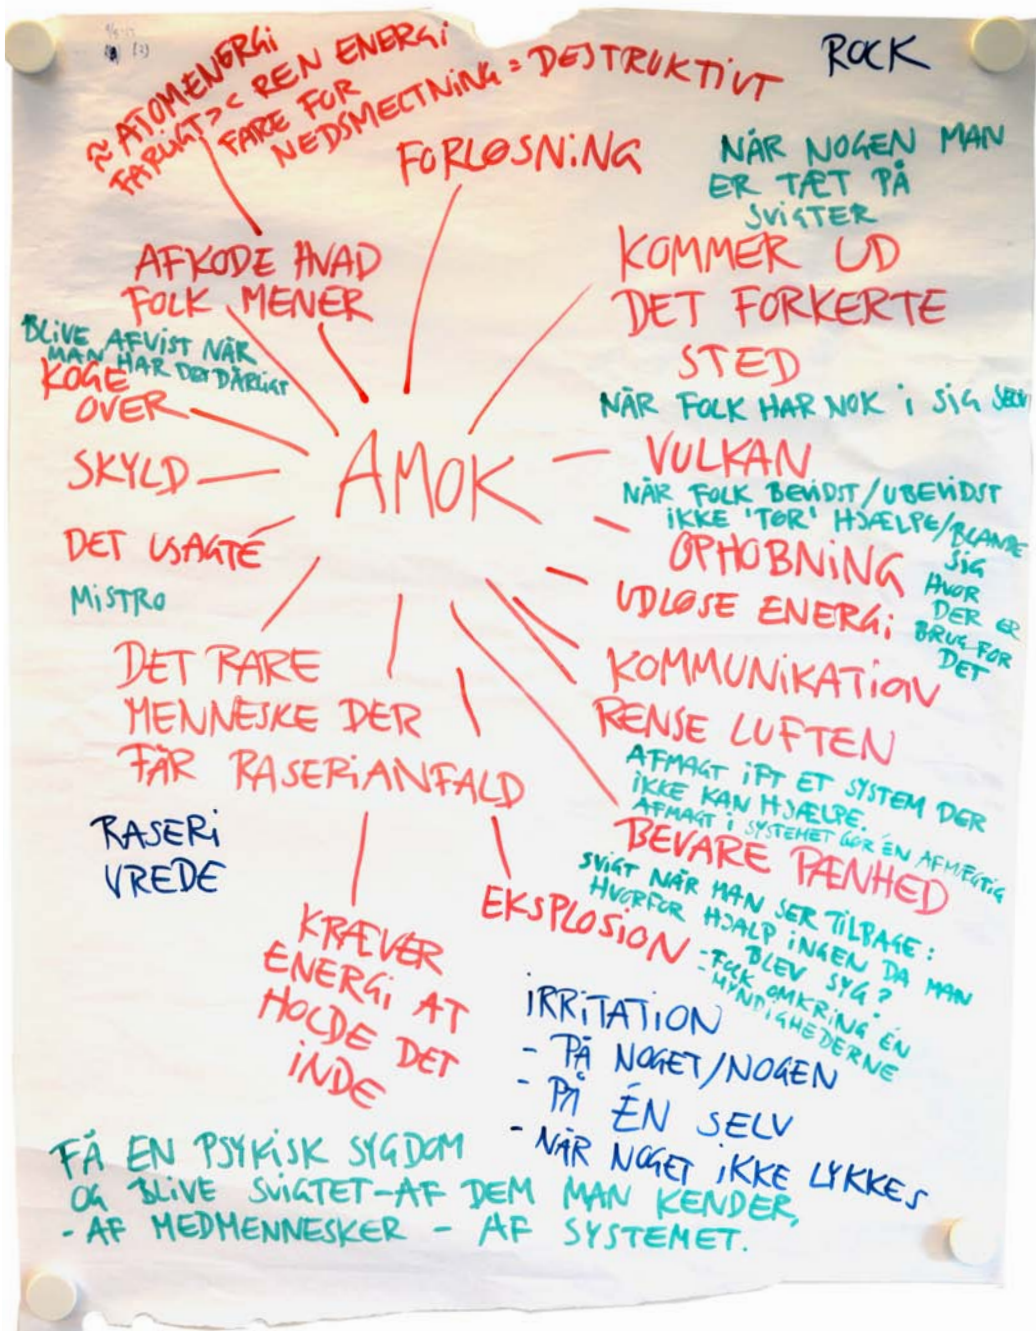 ≈ ATOMENERGI
FARLIGT >< REN ENERGI
FARE FOR
NEDSMELTNING = DESTRUKTIVT
ROCK
FORLØSNING
NÅR NOGEN MAN
ER TÆT PÅ
SVIGTER
AFKODE HVAD
FOLK MENER
KOMMER UD
DET FORKERTE
STED
BLIVE AFVIST NÅR
MAN HAR DET DÅRLIGT
KOGE
OVER
NÅR FOLK HAR NOK i SIG SELV
SKYLD
AMOK
VULKAN
NÅR FOLK BEVIDST/UBEVIDST
IKKE 'TØR' HJÆLPE/BLANDE
SIG
HVOR
DER ER
BRUG FOR
DET
DET USAGTE
OPHOBNING
MISTRO
UDLØSE ENERGI
DET RARE
MENNESKE DER
FÅR RASERIANFALD
KOMMUNIKATION
RENSE LUFTEN
AFMAGT IFT ET SYSTEM DER
IKKE KAN HJÆLPE.
AFMAGT I SYSTEMET GØR ÉN AFMÆGTIG
RASERI
VREDE
BEVARE PÆNHED
SVIGT NÅR MAN SER TILBAGE:
HVORFOR HJALP INGEN DA MAN
BLEV SYG?
- FOLK OMKRING ÉN
- MYNDIGHEDERNE
EKSPLOSION
KRÆVER
ENERGI AT
HOLDE DET
INDE
IRRITATION
- PÅ NOGET/NOGEN
- PÅ ÉN SELV
- NÅR NOGET IKKE LYKKES
FÅ EN PSYKISK SYGDOM
OG BLIVE SVIGTET - AF DEM MAN KENDER,
- AF MEDMENNESKER - AF SYSTEMET.